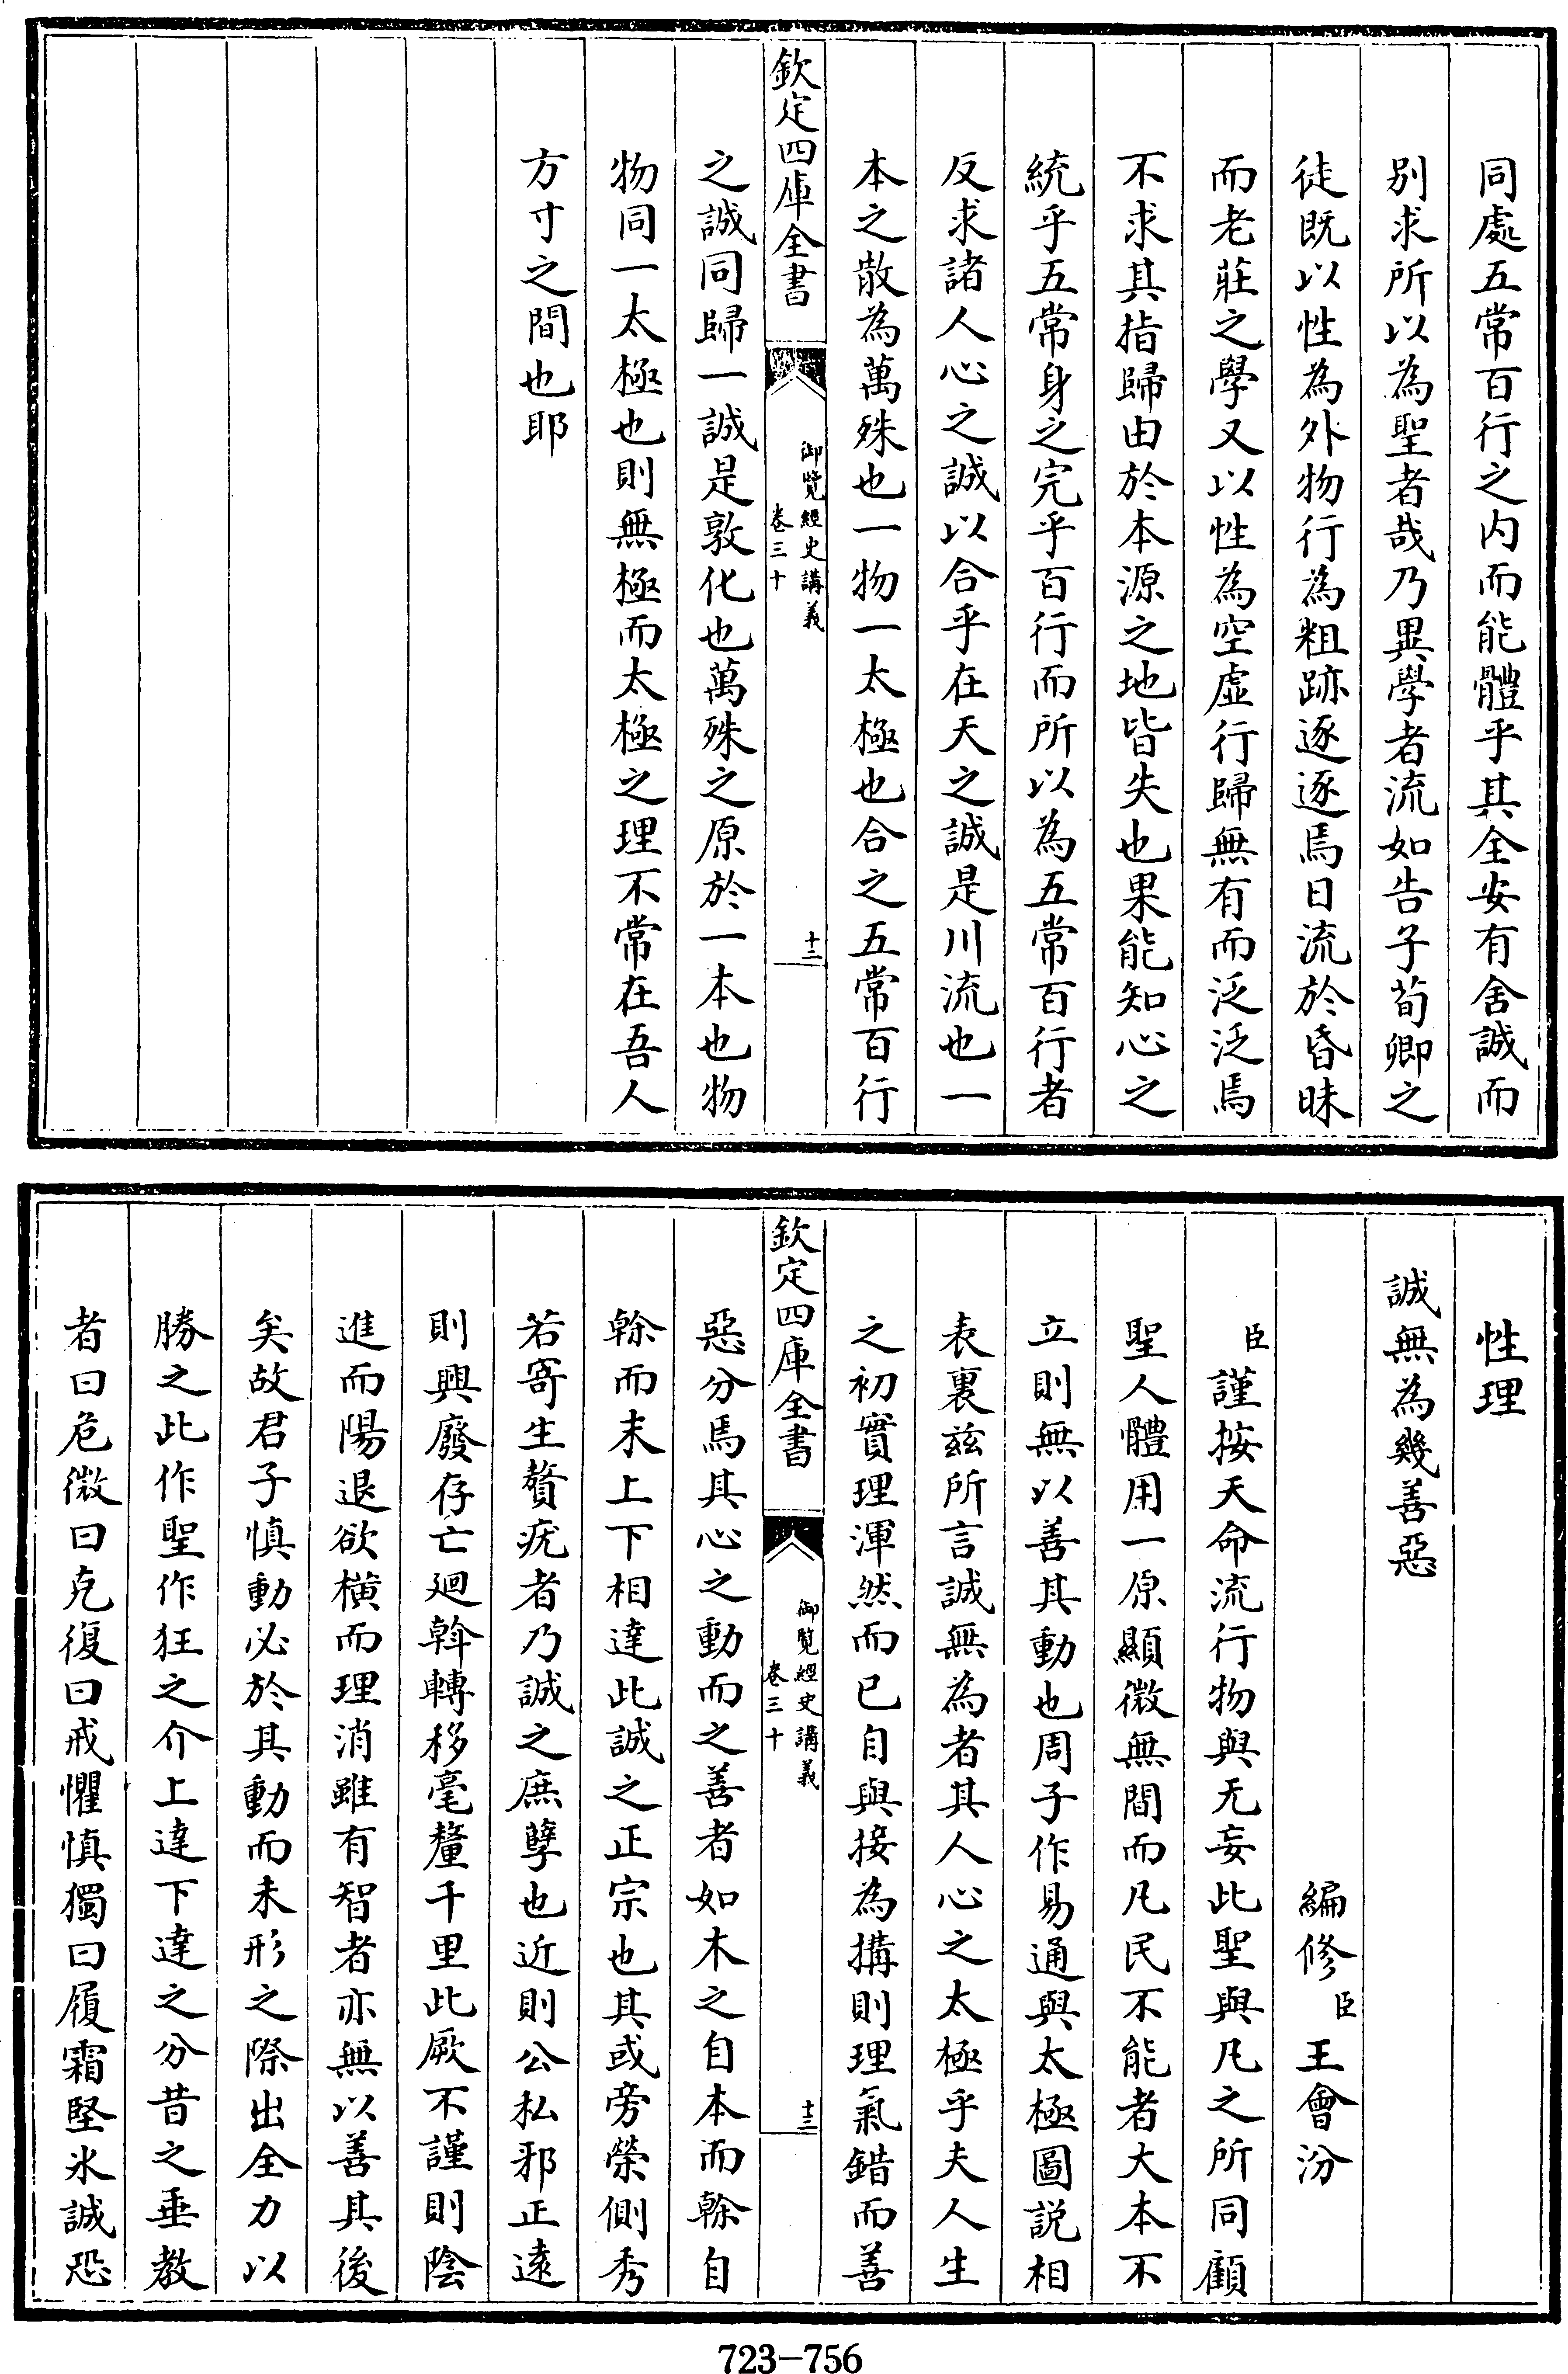 同處五常百行之内而能體乎其全安有舍誠而
别求所以為聖者哉乃異學者流如告子荀卿之
徒既以性為外物行為粗跡逐逐焉日流於昏昧
而老莊之學又以性為空虚行歸無有而泛泛焉
不求其指歸由於本源之地皆失也果能知心之
統乎五常身之完乎百行而所以為五常百行者
反求諸人心之誠以合乎在天之誠是川流也一
本之散為萬殊也一物一太極也合之五常百行
欽定四庫全書
御覽經史講義
卷三十
十二
之誠同歸一誠是敦化也萬殊之原於一本也物
物同一太極也則無極而太極之理不常在吾人
方寸之間也耶
性理
誠無為幾善惡
編修臣王會汾
臣謹按天命流行物與无妄此聖與凡之所同顧
聖人體用一原顯微無間而凡民不能者大本不
立則無以善其動也周子作易通與太極圖説相
表裏兹所言誠無為者其人心之太極乎夫人生
之初實理渾然而已自與接為搆則理氣錯而善
欽定四庫全書
御覽經史講義
卷三十
十三
惡分焉其心之動而之善者如木之自本而榦自
榦而末上下相達此誠之正宗也其或旁榮側秀
若寄生贅疣者乃誠之庶孽也近則公私邪正遠
則興廢存亡廻斡轉移毫釐千里此厥不謹則陰
進而陽退欲横而理消雖有智者亦無以善其後
矣故君子慎動必於其動而未形之際出全力以
勝之此作聖作狂之介上達下達之分昔之垂教
者曰危微曰克復曰戒懼慎獨曰履霜堅氷誠恐
723-756